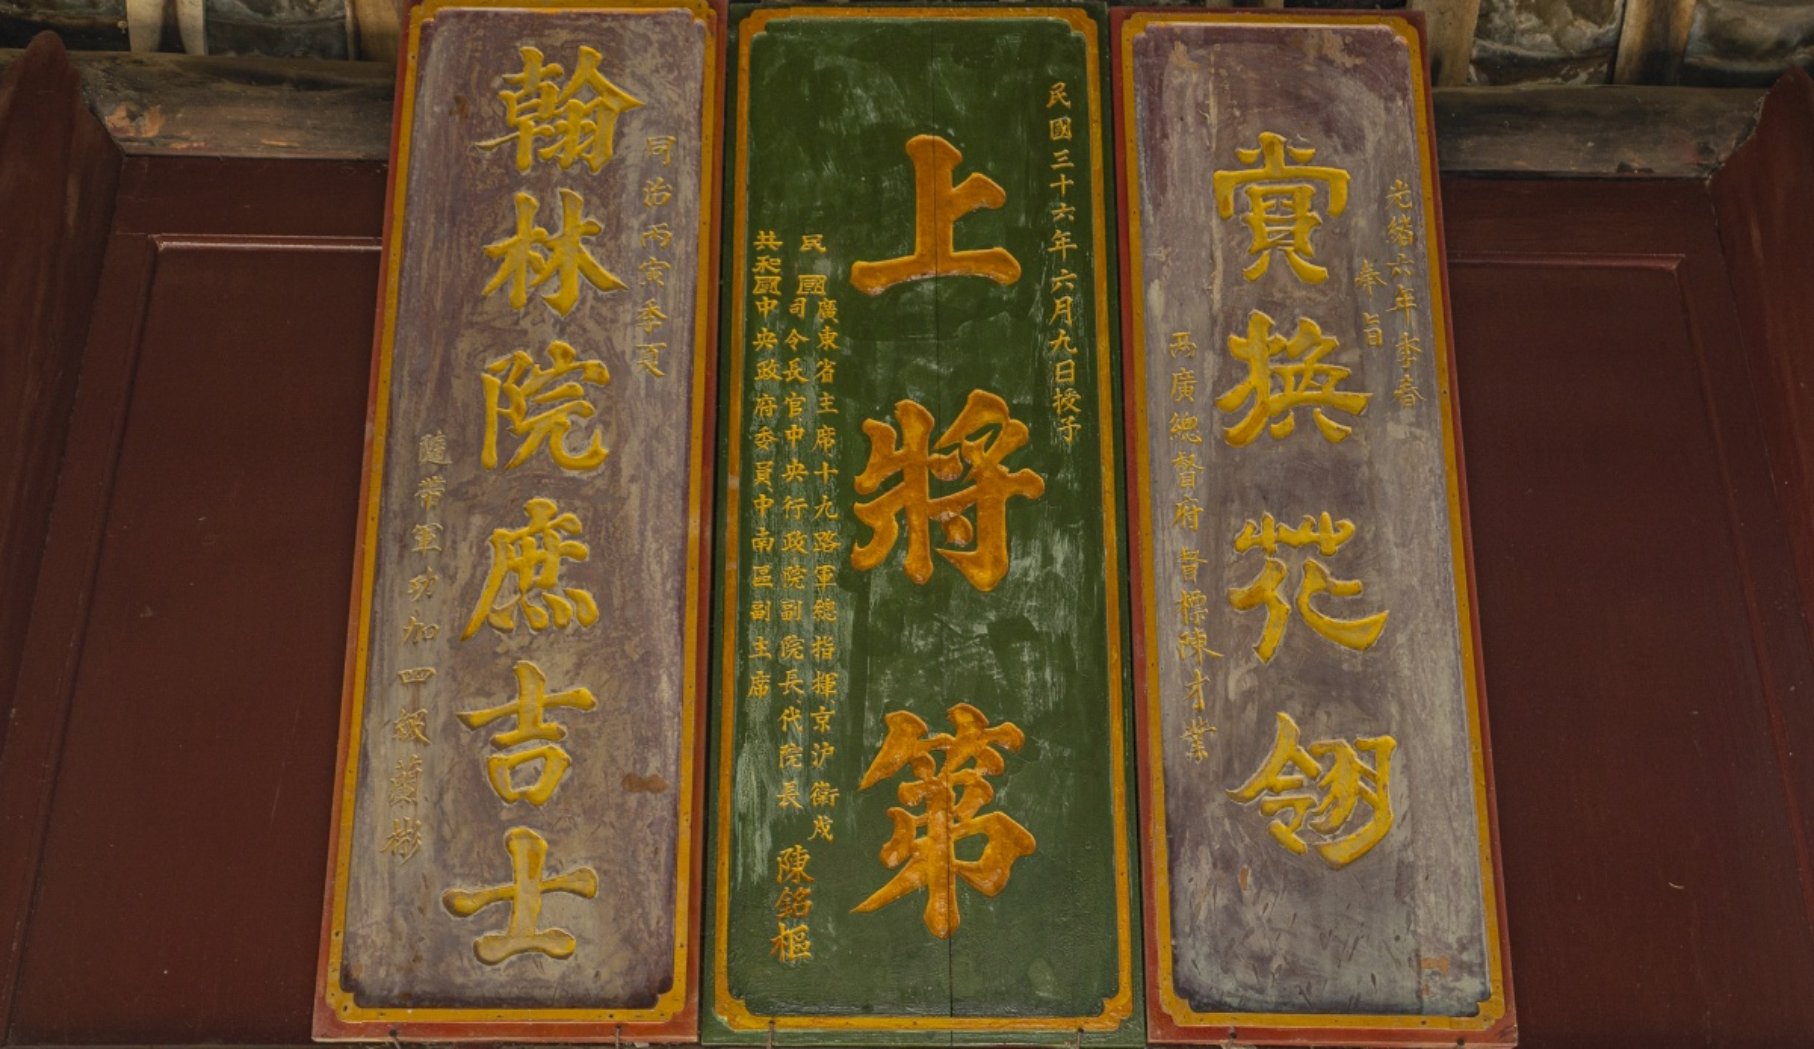 光緒六年季春
奉旨
賞換花翎
兩廣總督府督標陳才業
民國三十六年六月九日授予
上將第
民國
廣東省主席十九路軍總指揮京沪衛戍
司令長官中央行政院副院長代院長
共和國中央政府委員中南區副主席
陳銘樞
同治丙寅季夏
翰林院庶吉士
隨帶軍功加四級彬